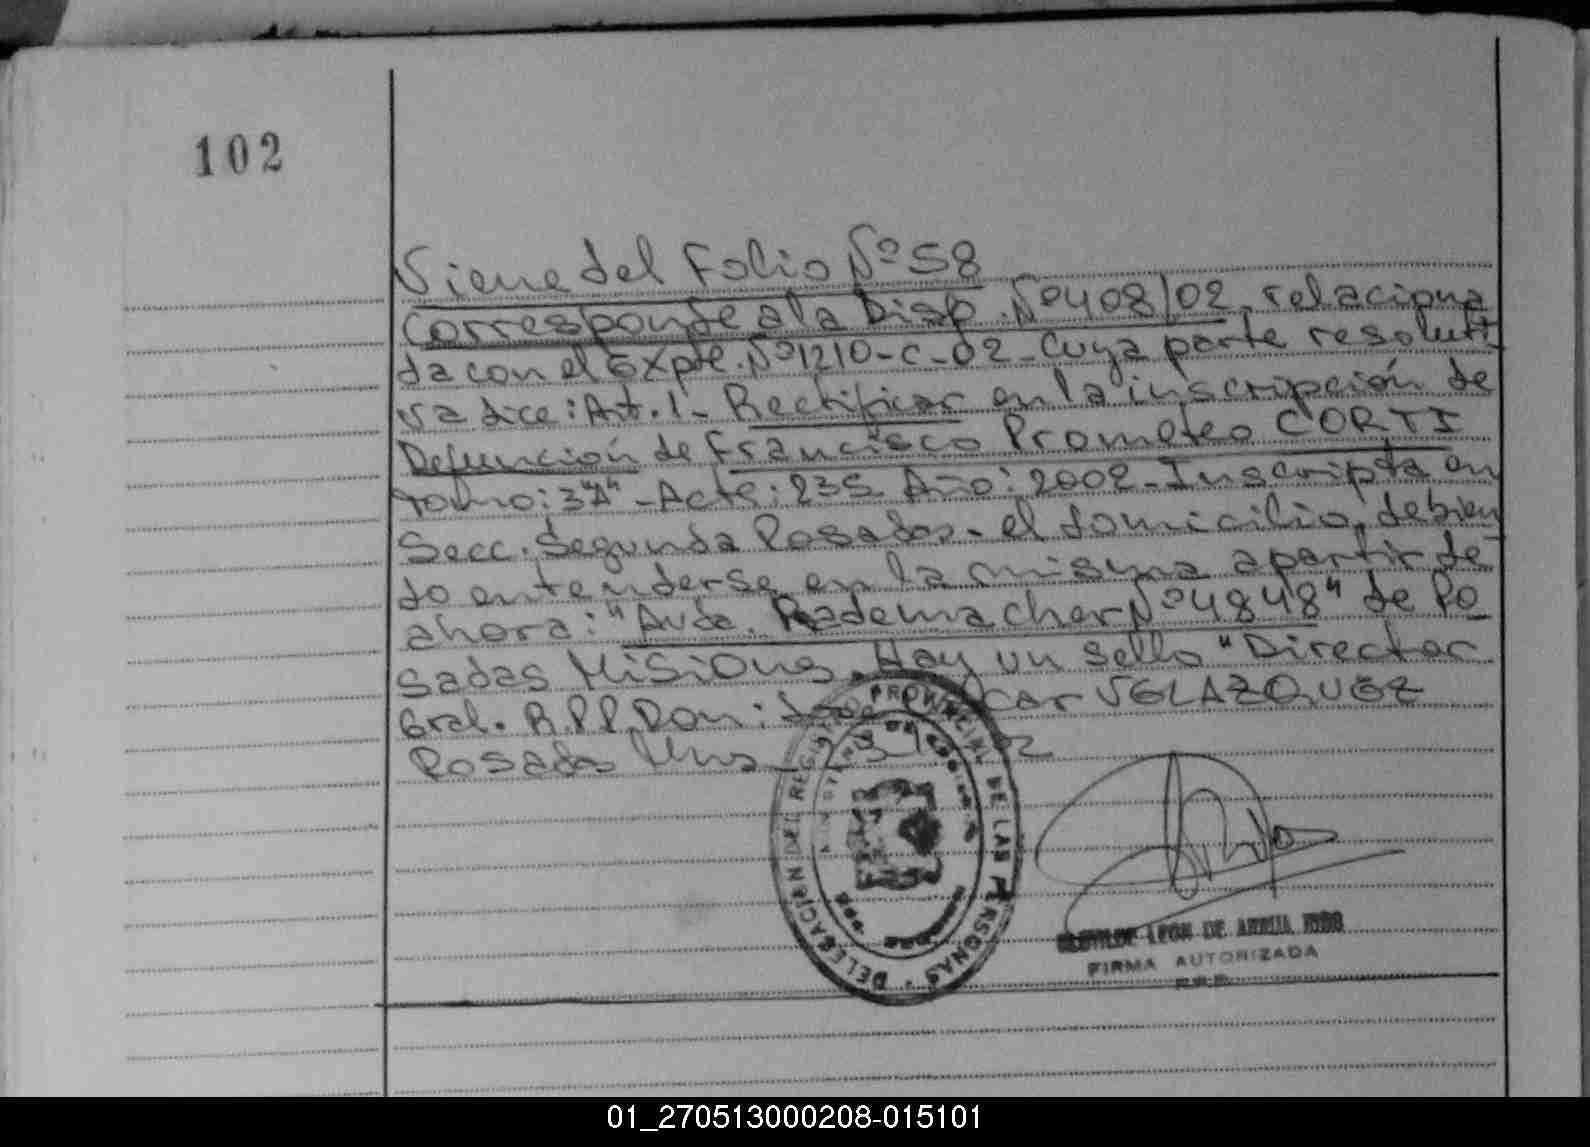 102
Viene del Folio Nº 58
Corresponde a la Disp. Nº 408/02, relaciona
da con el Expte. Nº 1210-C-02- Cuya parte resoluti
va dice: Art. 1- Rectificar en la inscripción de
Defunción de Francisco Prometeo CORTI
Tomo: 3"A" - Acta: 235 Año: 2002- Inscripta en
Secc. Segunda Posadas- el domicilio, debien
do entenderse en la misma a partir de
ahora: "Avda. Rademacher Nº 4848" de Po
sadas Misiones. Hay un sello "Director
Gral. R.P.P. Don: VELAZQUEZ
Posadas Mnes
DELEGACION DEL REGISTRO PROVINCIAL DE LAS PERSONAS
LEON DE ARRUA
FIRMA AUTORIZADA
01_270513000208-015101